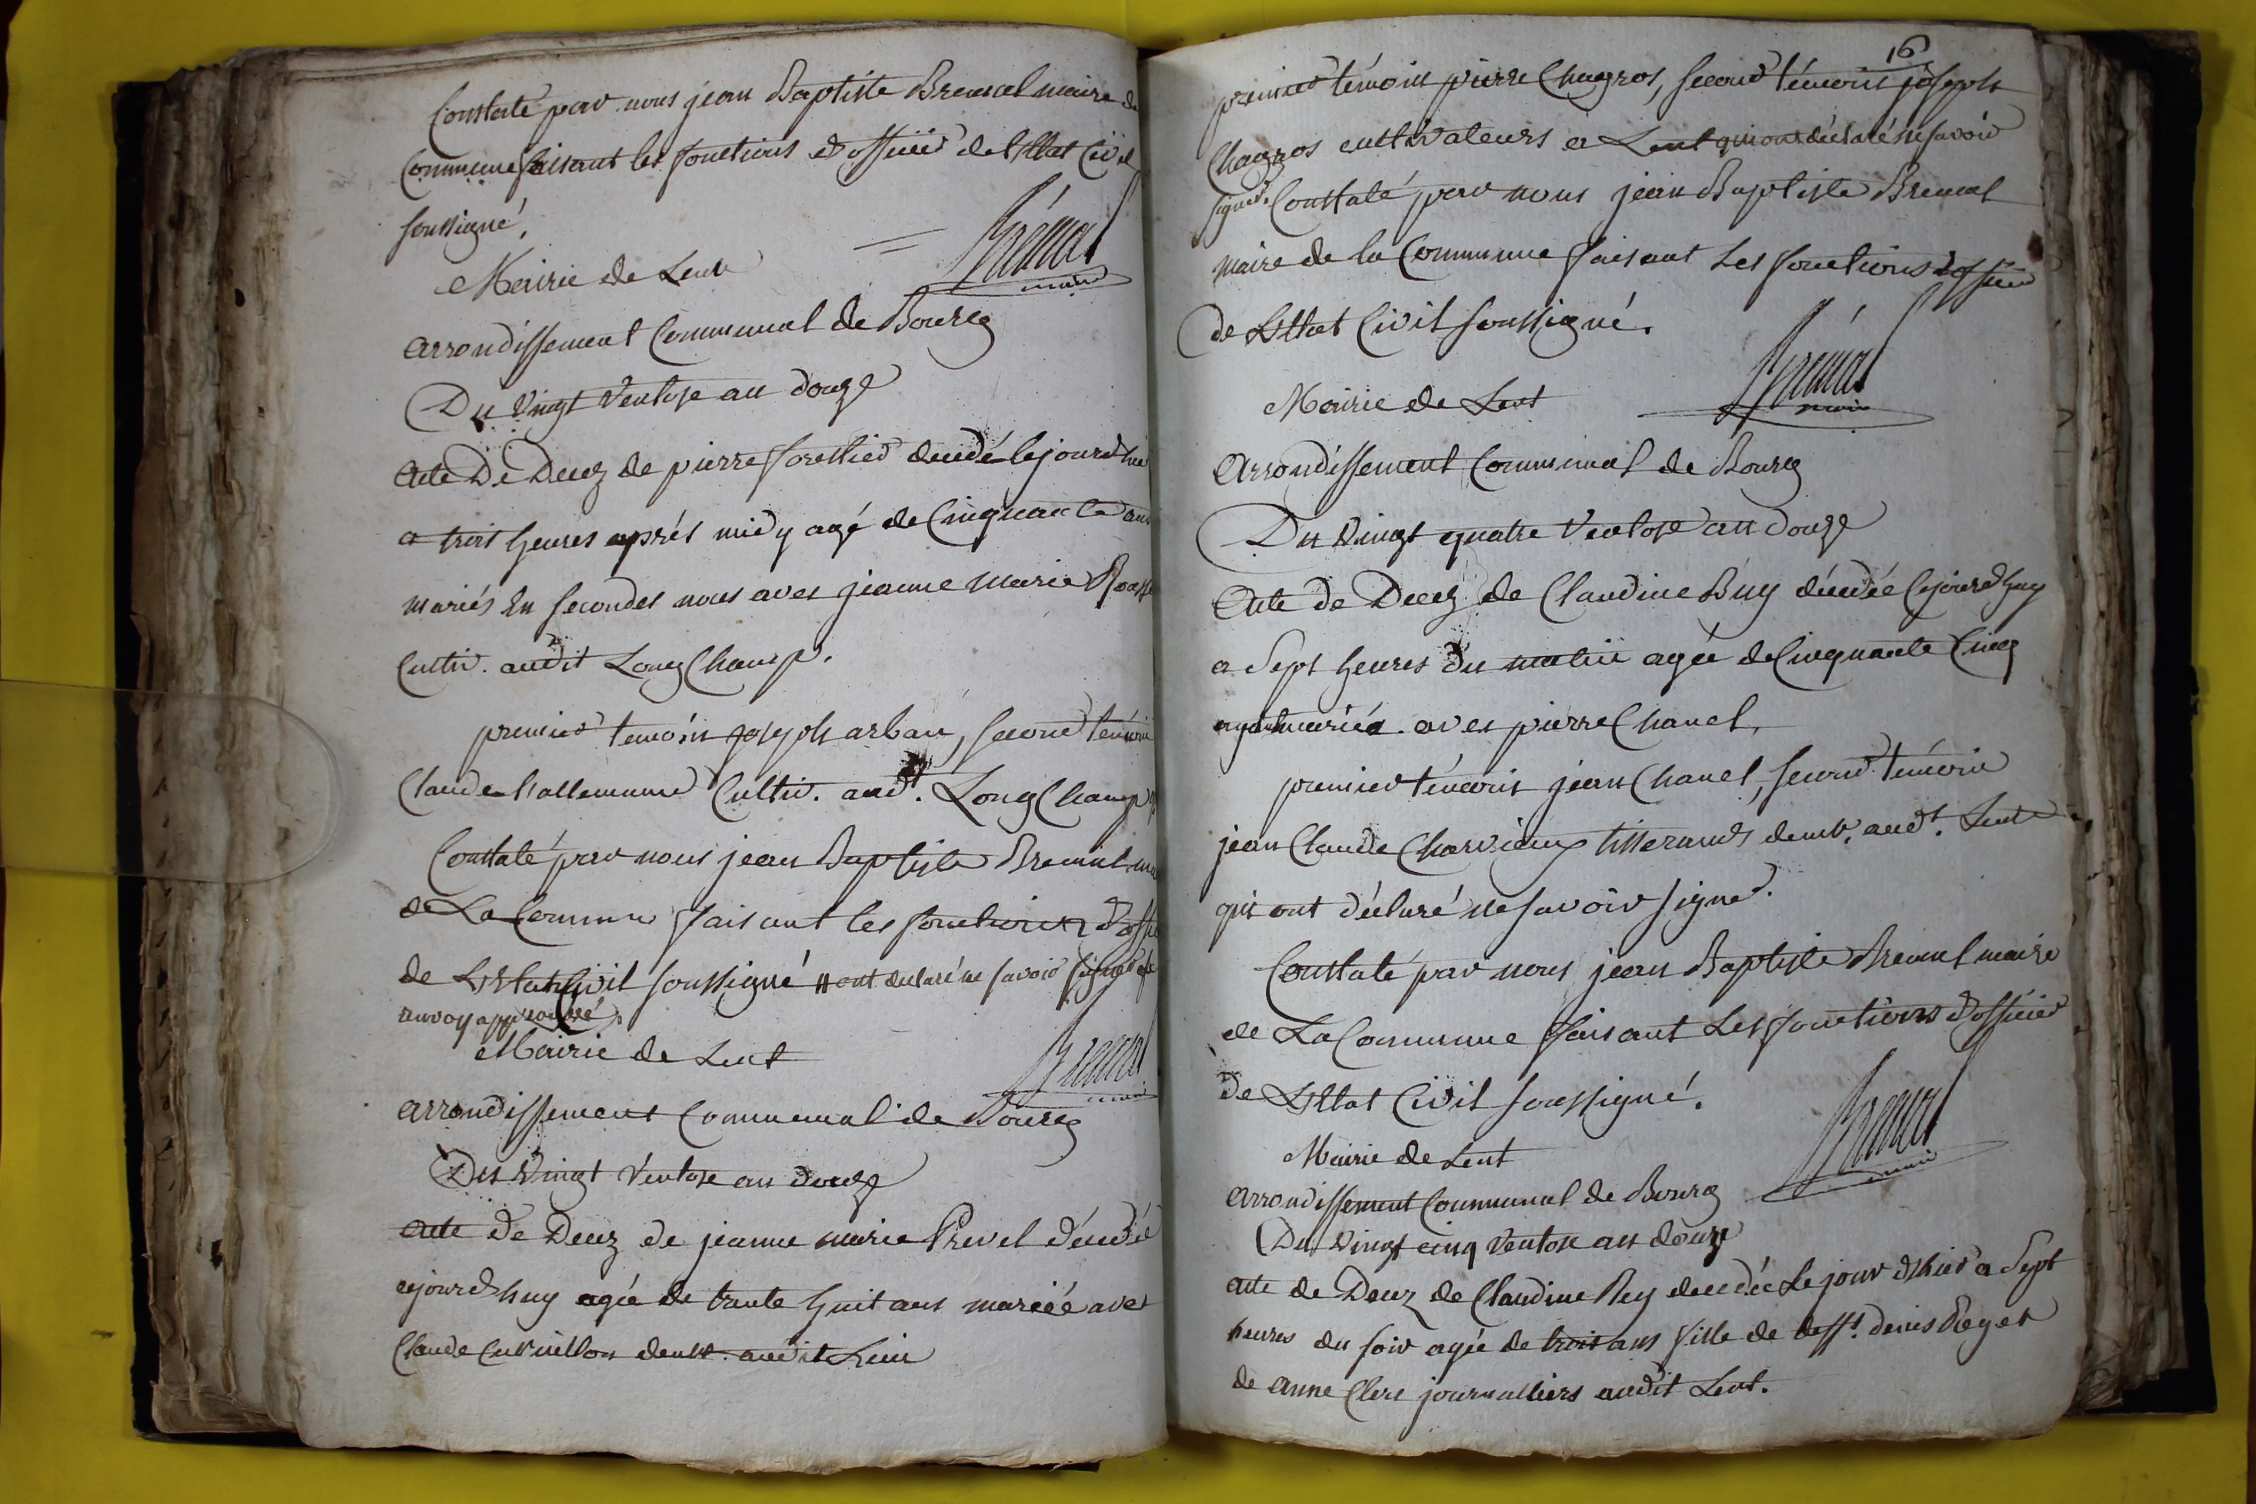 Constaté par nous jean Baptiste Bremal maire de
Commune faisant les fonctions d'officié de l'Etat Civil
soussigné,
Brémal
maire
Mairie de Lent
arrondissement Communal de Bourg
Du Vingt Ventose an douze
Acte De Decez de pierre décédé le jour d'hié
a trois heures après midy agé de Cinquante ans
mariés En secondes noces avec jeanne Marie
Cultiv. audit LongChamp.
premier temoin joseph arban, second témoin
Claude Lallemand Cultiv. aud.t LongChamp
Constaté par nous jean Baptiste Bremal
de La Commune faisant les fonctions d'
de L'Etat Civil soussigné # ont declaré ne savoir signer
renvoy approuvé.
Bremal
Mairie de Lent
arrondissement Communal de Bourg
Du Vingt Ventose an douze
acte de Decez de jeanne marie Prevel décédé
cejourdhuy agée de trante huit ans mariée avec
Claude Cuvuillon demt. audit Lent
16
premier témoin pierre Chagros, second témoin joseph
Chagros cultivateurs a Lent qui ont déclaré ne savoir
signer. Constaté par nous jean Baptiste Bremal
maire de la Commune faisant Les fonctions d'officier
de L'Etat Civil soussigné.
Brémal
maire
Mairie de Lent
Arrondissement Communal de Bourg
Du Vingt quatre Ventose an douze
Acte de Decez de Claudine Buy décédée Cejourdhuy
a Sept heures du matin agée de Cinquante Cinq
ans mariée avec pierre Chanel,
premier témoin jean Chanel, second témoin
jean Claude Charvieux tisserands demt. aud.t Lent
qui ont déclaré ne savoir signer.
Constaté par nous jean Baptiste Bremal maire
de La Commune faisant Les fonctions d'officier
de L'Etat Civil soussigné.
Bremal
maire
Mairie de Lent
arrondissement Communal de Bourg
Du Vingt cinq Ventose an douze
acte de Decez de Claudine Rey decedée Le jour d'hier a Sept
heures du soir agée de trois ans fille de deff.t denis Rey et
de anne Clerc journalliers audit Lent.